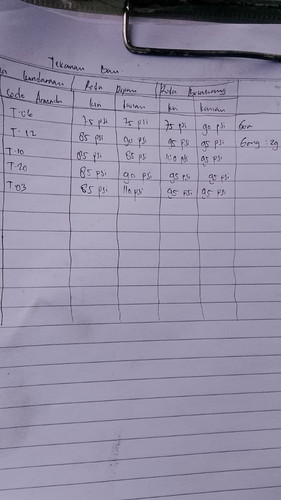 Tekanan Ban
Kendaraan Roda Depan Roda Belakang
Code Armada kiri kanan kiri kanan
T-06 75 psi 75 psi 75 psi 90 psi
T-12 85 psi 90 psi 95 psi 95 psi
T-10 85 psi 85 psi 110 psi 95 psi
T-20 85 psi 90 psi 95 psi 95 psi
T-03 85 psi 110 psi 95 psi 95 psi